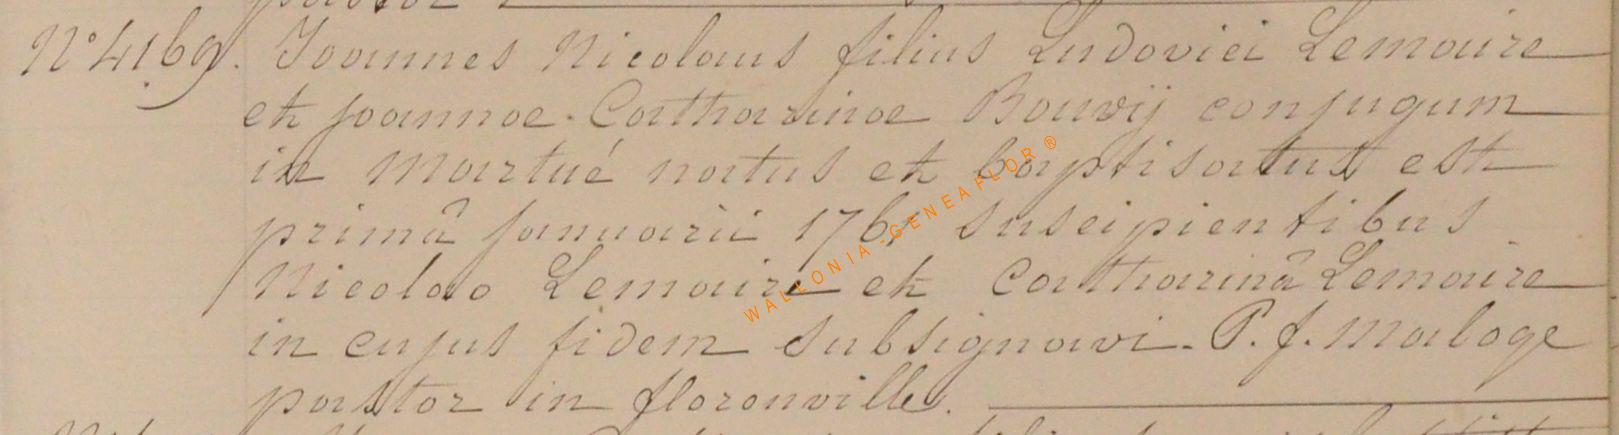 N° 4169. Joannes Nicolaus filius Ludovici Lemaire
et Joannae Catharinae Bouvij conjugum
in Martué natus et baptisatus est
primâ Januarii suscipientibus
Nicolao Lemaire et Catharinâ Lemaire
in cujus fidem subsignavi. P. J. Maloge
pastor in florenville.
WALLONIA-GENEAFLOR ®